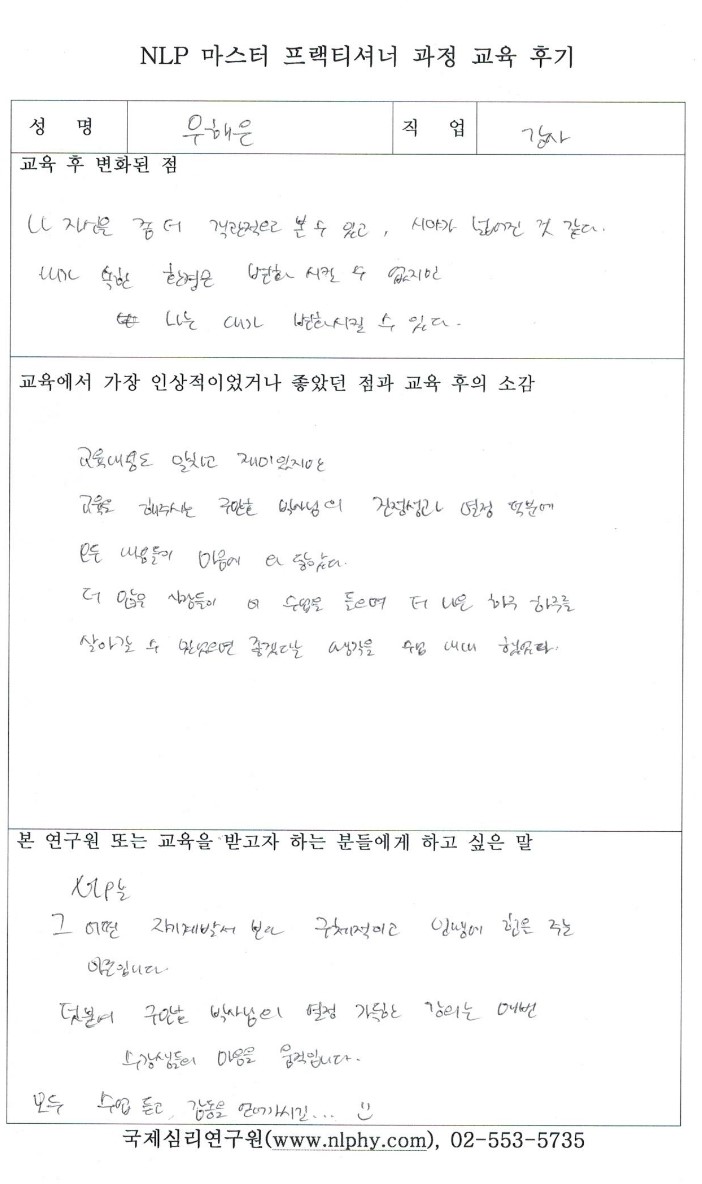 NLP 마스터 프랙티셔너 과정 교육 후기
성 명 우해은 직 업 강사
교육 후 변화된 점
나 자신을 좀 더 객관적으로 볼 수 있고, 시야가 넓어진 것 같다.
내가 속한 환경은 변화 시킬 수 없지만
나는 내가 변화시킬 수 있다.
교육에서 가장 인상적이었거나 좋았던 점과 교육 후의 소감
교육내용도 알찼고 재미있지만
교육을 해주시는 구만호 박사님의 진정성과 열정 덕분에
모든 내용들이 마음에 와 닿았다.
더 많은 사람들이 이 수업을 들으며 더 나은 하루 하루를
살아갈 수 있었으면 좋겠다는 생각을 수업 내내 했었다.
본 연구원 또는 교육을 받고자 하는 분들에게 하고 싶은 말
NLP는
그 어떤 자기계발서 보다 구체적이고 인생에 힘을 주는
이론입니다.
덧붙여 구만호 박사님의 열정 가득한 강의는 매번
수강생들의 마음을 움직입니다.
모두 수업 듣고, 감동을 얻어가시길... ☺
국제심리연구원(www.nlphy.com), 02-553-5735